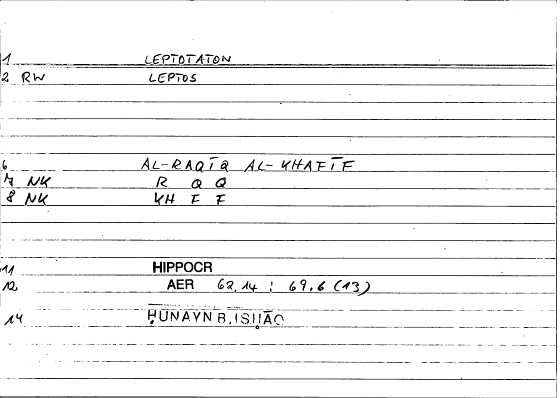 1 LEPTOTATON
2 RW LEPTOS
6 AL-RAQĪQ AL-KHAFĪF
7 NK R Q Q
8 NK KH F F
11 HIPPOCR
12 AER 62,14 : 69,6 (13)
14 ḤUNAYN B. ISḤĀQ